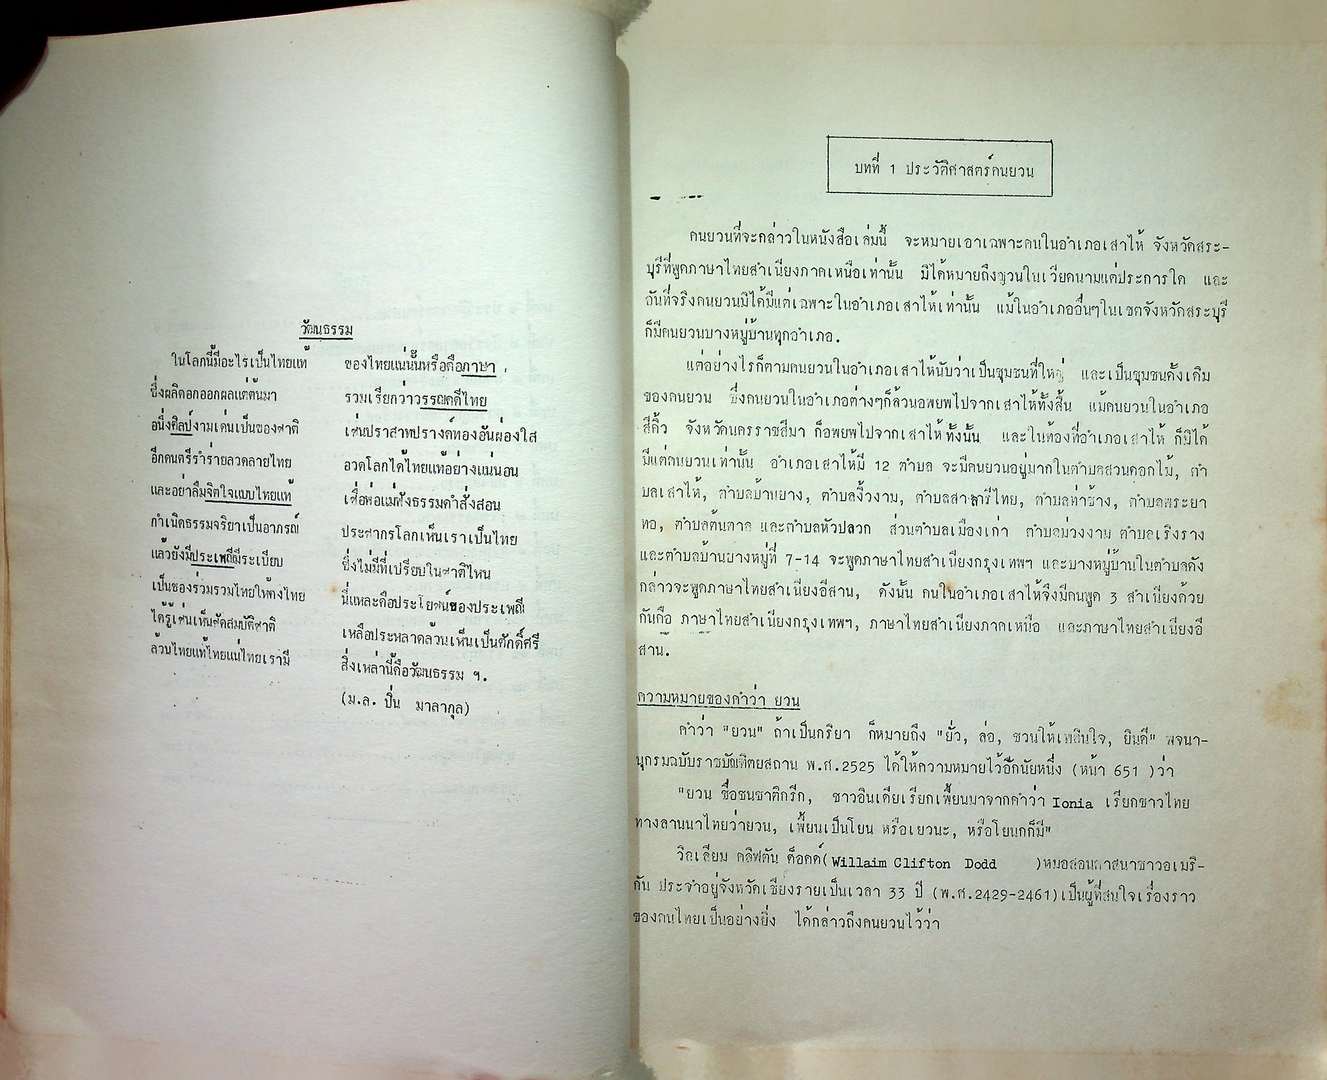 วัฒนธรรม
ในโลกนี้มีอะไรเป็นไทยแท้ ของไทยแน่นั้นหรือคือภาษา
ซึ่งผลิดอกออกผลแต่ต้นมา รวมเรียกว่าวรรณคดีไทย
อนึ่งศิลป์งามเด่นเป็นของชาติ เช่นปราสาทปรางค์ทองอันผ่องใส
อีกดนตรีรำร่ายลวดลายไทย อวดโลกได้ไทยแท้อย่างแน่นอน
และอย่าลืมจิตใจแบบไทยแท้ เชื่อพ่อแม่ฟังธรรมคำสั่งสอน
กำเนิดธรรมจริยาเป็นอาภรณ์ ประสากรโลกเห็นเราเป็นไทย
แล้วยังมีประเพณีมีระเบียบ ซึ่งไม่มีที่เปรียบในชาติไหน
เป็นของร่วมรวมไทยให้คงไทย นี่แหละคือประโยชน์ของประเพณี
ได้รู้เช่นเห็นชัดสมบัติชาติ เหลือประหลาดล้วนเห็นเป็นศักดิ์ศรี
ล้วนไทยแท้ไทยแน่ไทยเรามี สิ่งเหล่านี้คือวัฒนธรรม ฯ.
(ม.ล. ปิ่น มาลากุล)
บทที่ 1 ประวัติศาสตร์คนยวน
คนยวนที่จะกล่าวในหนังสือเล่มนี้ จะหมายเอาเฉพาะคนในอำเภอเสาไห้ จังหวัดสระ-
บุรีที่พูดภาษาไทยสำเนียงภาคเหนือเท่านั้น มิได้หมายถึงญวนในเวียดนามแต่ประการใด และ
อันที่จริงคนยวนมิได้มีแต่เฉพาะในอำเภอเสาไห้เท่านั้น แม้ในอำเภออื่นๆในเขตจังหวัดสระบุรี
ก็มีคนยวนบางหมู่บ้านทุกอำเภอ.
แต่อย่างไรก็ตามคนยวนในอำเภอเสาไห้นับว่าเป็นชุมชนที่ใหญ่ และเป็นชุมชนดั้งเดิม
ของคนยวน ซึ่งคนยวนในอำเภอต่างๆก็ล้วนอพยพไปจากเสาไห้ทั้งสิ้น แม้คนยวนในอำเภอ
สีคิ้ว จังหวัดนครราชสีมา ก็อพยพไปจากเสาไห้ทั้งนั้น และในท้องที่อำเภอเสาไห้ ก็มิได้
มีแต่คนยวนเท่านั้น อำเภอเสาไห้มี 12 ตำบล จะมีคนยวนอยู่มากในตำบลสวนดอกไม้, ตำ
บลเสาไห้, ตำบลบ้านยาง, ตำบลงิ้วงาม, ตำบลศาลารีไทย, ตำบลท่าช้าง, ตำบลพระยา
ทด, ตำบลต้นตาล และตำบลหัวปลวก ส่วนตำบลเมืองเก่า ตำบลม่วงงาม ตำบลเริงราง
และตำบลบ้านบางหมู่ที่ 7-14 จะพูดภาษาไทยสำเนียงกรุงเทพฯ และบางหมู่บ้านในตำบลดัง
กล่าวจะพูดภาษาไทยสำเนียงอีสาน, ดังนั้น คนในอำเภอเสาไห้จึงมีคนพูด 3 สำเนียงด้วย
กันคือ ภาษาไทยสำเนียงกรุงเทพฯ, ภาษาไทยสำเนียงภาคเหนือ และภาษาไทยสำเนียงอี
สาน.
ความหมายของคำว่า ยวน
คำว่า "ยวน" ถ้าเป็นกริยา ก็หมายถึง "ยั่ว, ล่อ, ชวนให้เพลินใจ, ยินดี" พจนา-
นุกรมฉบับราชบัณฑิตยสถาน พ.ศ.2525 ได้ให้ความหมายไว้อีกนัยหนึ่ง (หน้า 651 )ว่า
"ยวน ชื่อชนชาติกรีก, ชาวอินเดียเรียกเพี้ยนมาจากคำว่า Ionia เรียกชาวไทย
ทางลานนาไทยว่ายวน, เพี้ยนเป็นโยน หรือเยวนะ, หรือโยนกก็มี"
วิลเลียม คลิฟตัน ด็อดด์(Willaim Clifton Dodd )หมอสอนศาสนาชาวอเมริ-
กัน ประจำอยู่จังหวัดเชียงรายเป็นเวลา 33 ปี (พ.ศ.2429-2461)เป็นผู้ที่สนใจเรื่องราว
ของคนไทยเป็นอย่างยิ่ง ได้กล่าวถึงคนยวนไว้ว่า